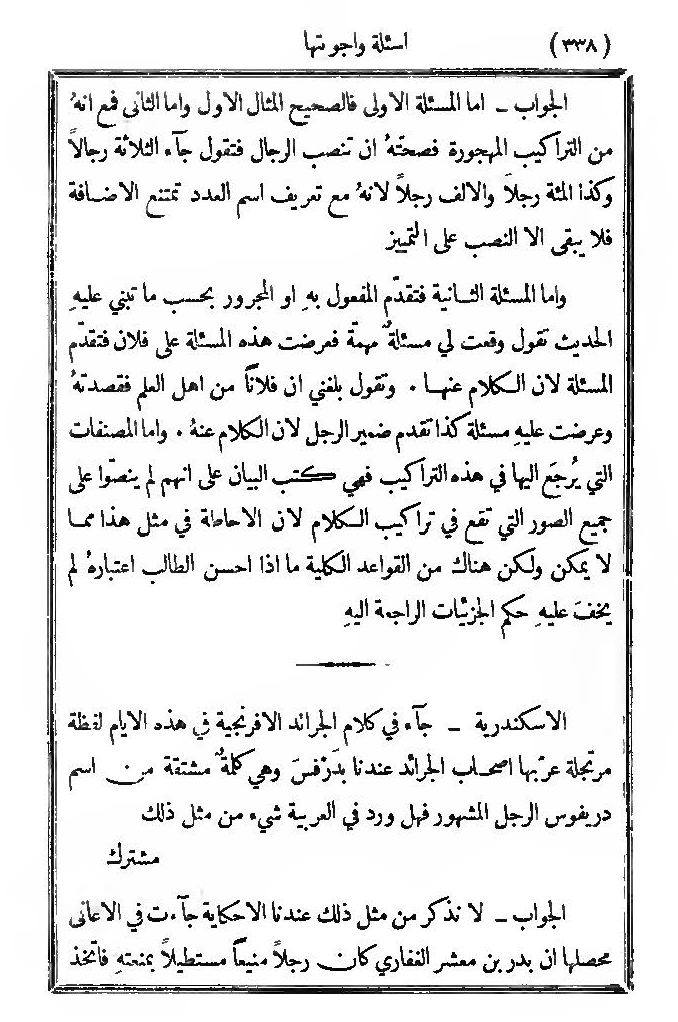 (٣٣٨) اسئلة واجوبتها
الجواب ــ اما المسئلة الاولى فالصحيح المثال الاول واما الثانى فمع انهُ
من التراكيب المهجورة فصحتهُ ان تنصب الرجال فتقول جآء الثلاثة رجالاً
وكذا المئة رجلاً والالف رجلاً لانهُ مع تعريف اسم العدد تمتنع الاضافة
فلا يبقى الا النصب على التمييز
واما المسئلة الثانية فتقدّم المفعول بهِ او المجرور بحسب ما تبني عليهِ
الحديث تقول وقعت لي مسئلةٌ مهمّة فعرضت هذه المسئلة على فلان فتقدّم
المسئلة لان الكلام عنها . وتقول بلغني ان فلاناً من اهل العلم فقصدتهُ
وعرضت عليهِ مسئلة كذا تقدم ضمير الرجل لان الكلام عنهُ . واما المصنفات
التي يُرجَع اليها في هذه التراكيب فهي كتب البيان على انهم لم ينصّوا على
جميع الصور التي تقع في تراكيب الكلام لان الاحاطة في مثل هذا مما
لا يمكن ولكن هناك من القواعد الكلية ما اذا احسن الطالب اعتبارهُ لم
يخفَ عليهِ حكم الجزئيات الراجعة اليهِ
الاسكندرية ــ جآء في كلام الجرائد الافرنجية في هذه الايام لفظة
مرتجلة عرّبها اصحاب الجرائد عندنا بدَرْفسَ وهي كلمةٌ مشتقة من اسم
دريفوس الرجل المشهور فهل ورد في العربية شيء من مثل ذلك
مشترك
الجواب ــ لا نذكر من مثل ذلك عندنا الاحكاية جآءت في الاغانى
محصلها ان بدر بن معشر الغفاري كان رجلاً منيعاً مستطيلاً بمنعتهِ فاتخذ